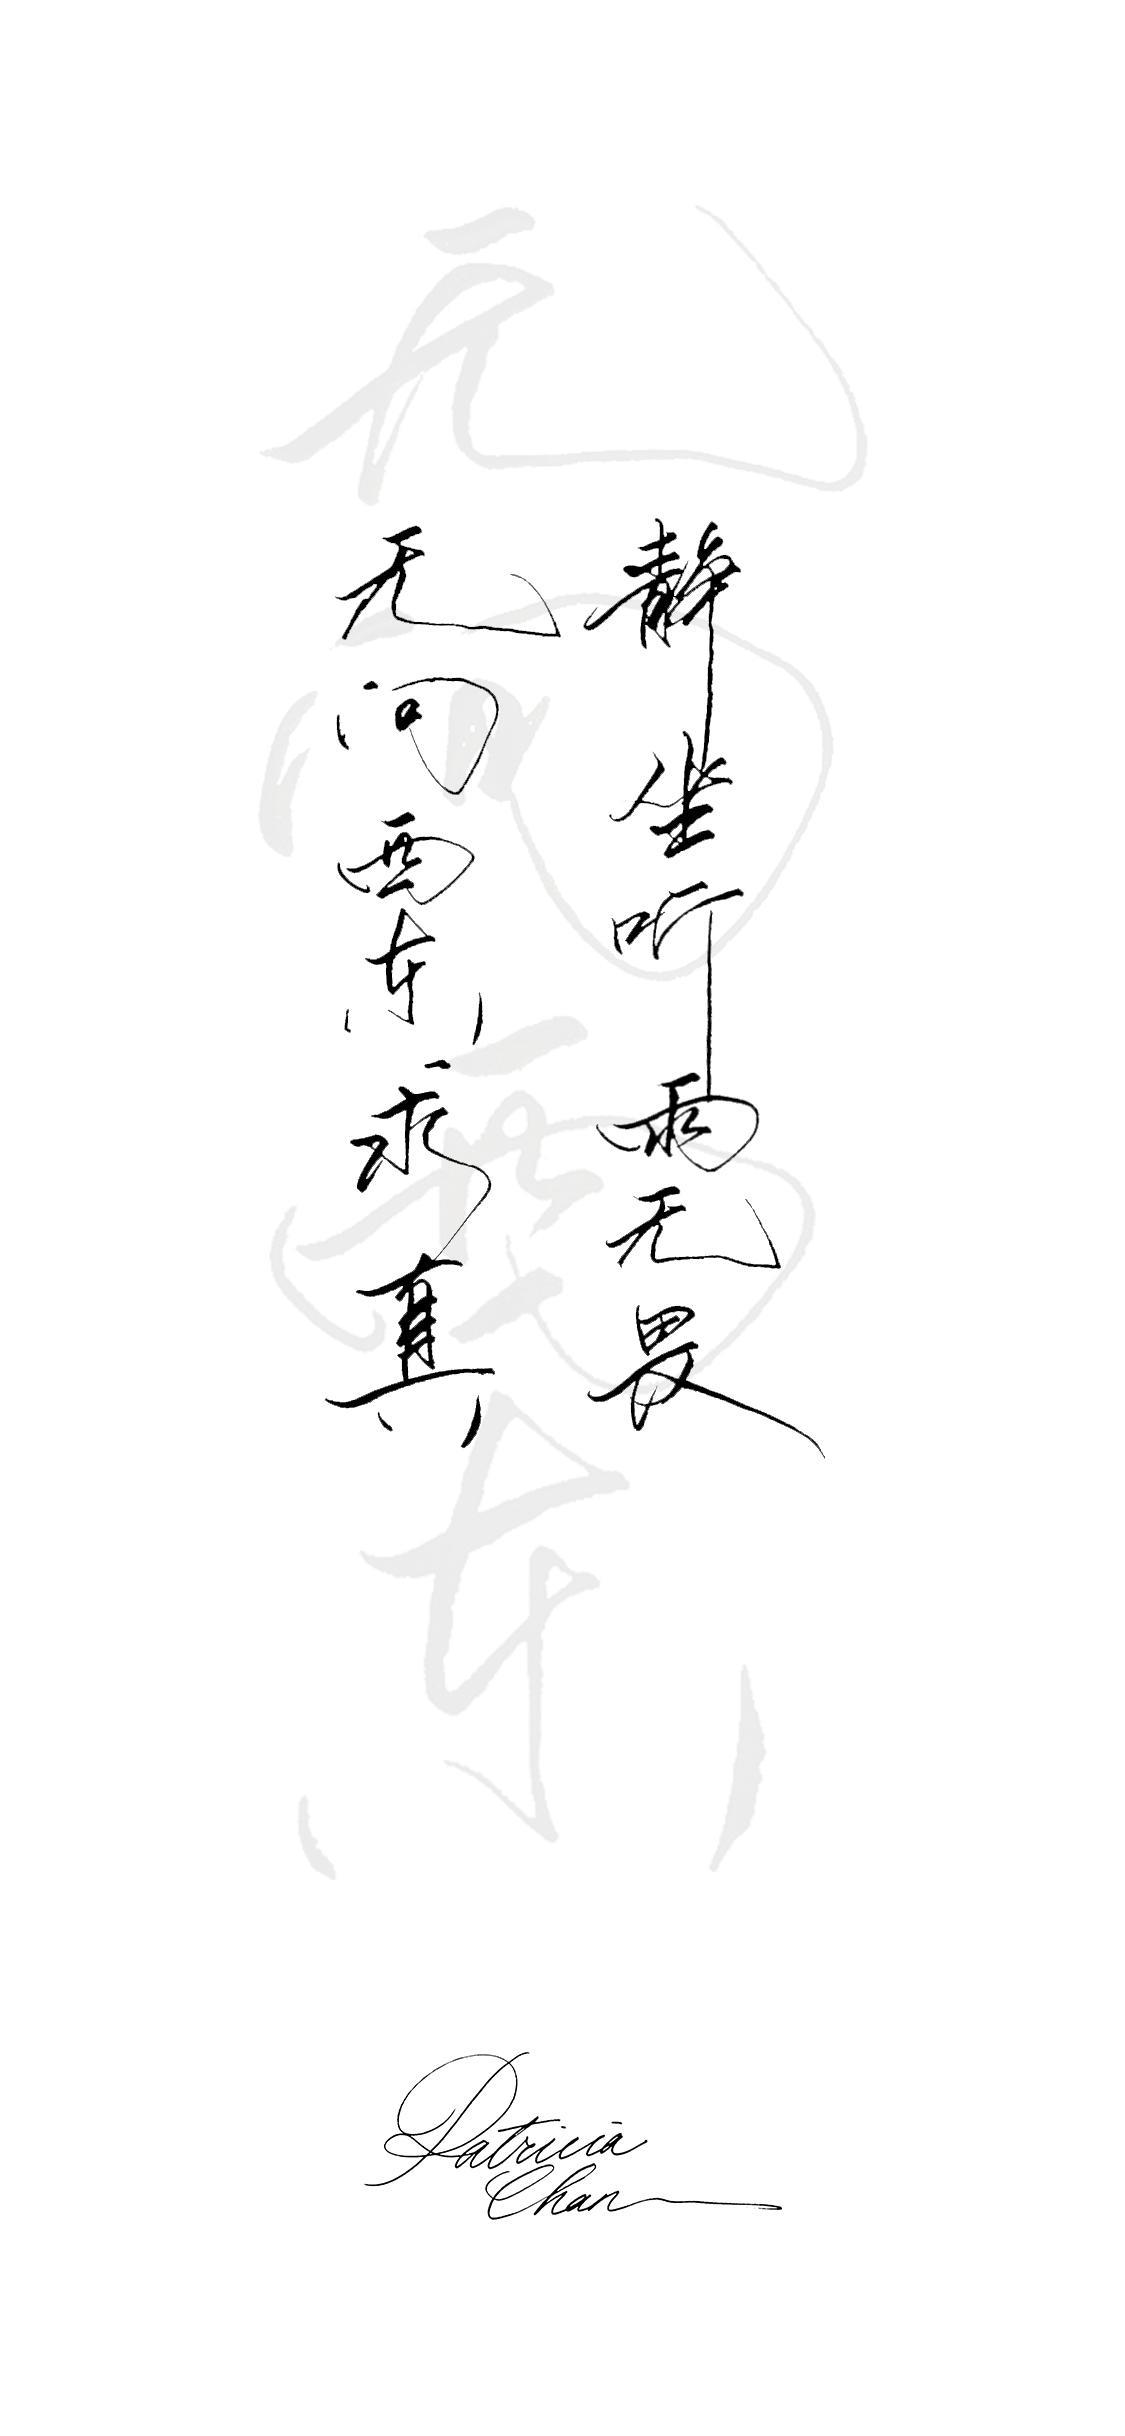 静坐听雨无畏
无问西东求真
无问西东
Patricia
Chan